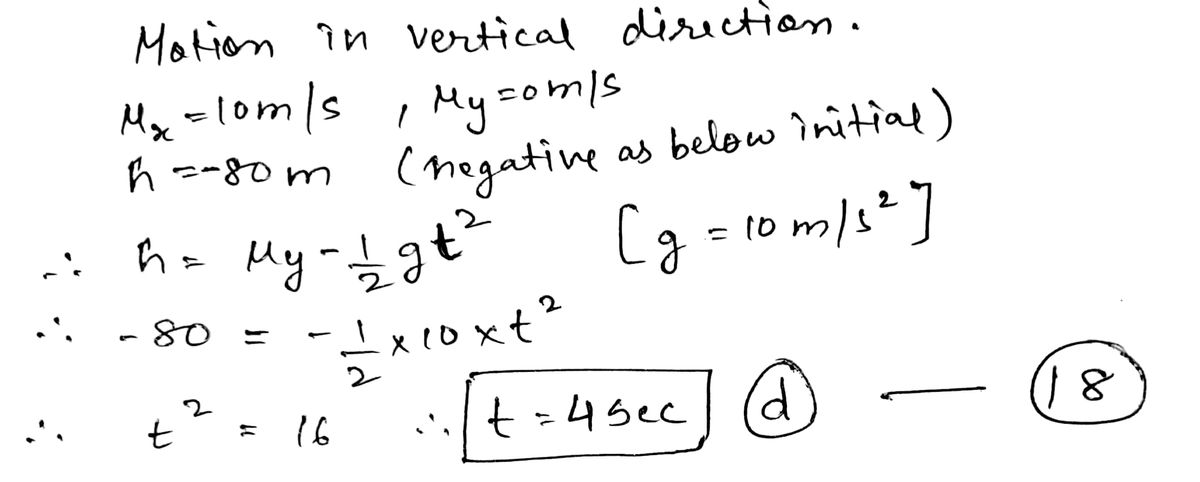 Motion in vertical direction.
μx = 10m/s , μy = 0m/s
h = -80 m (negative as below initial)
∴ h = μy - 1/2 gt² [g = 10 m/s²]
∴ -80 = - 1/2 × 10 × t²
∴ t² = 16 ∴ t = 4 sec (d) — (18)